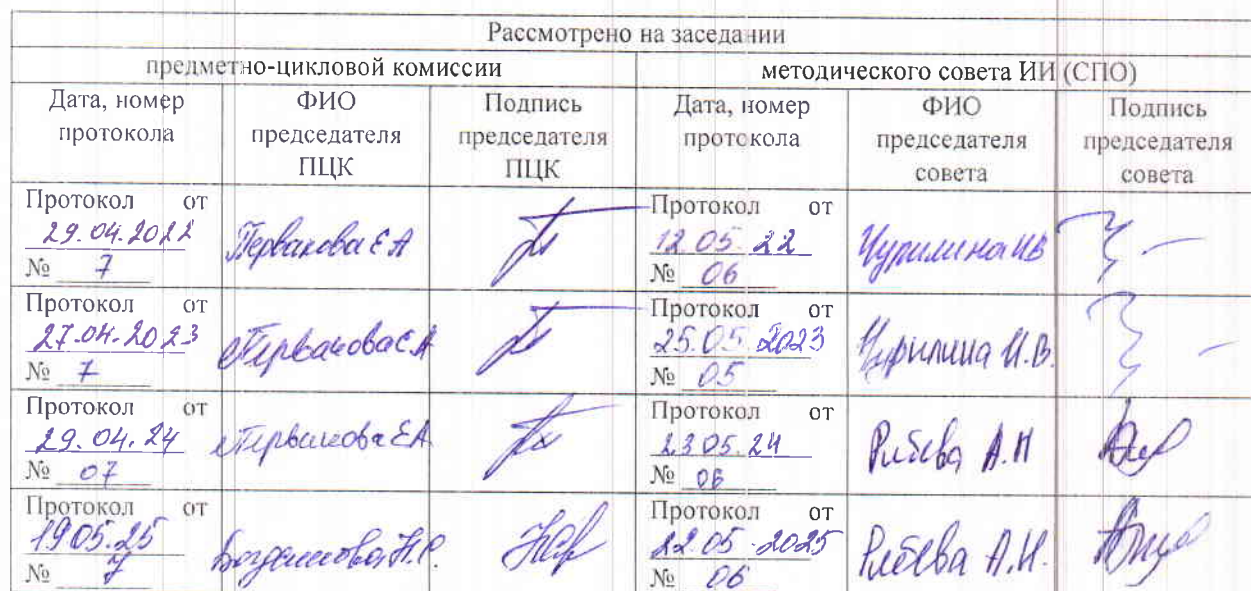 Рассмотрено на заседании
предметно-цикловой комиссии
методического совета ИИ (СПО)
Дата, номер протокола
ФИО председателя ПЦК
Подпись председателя ПЦК
Дата, номер протокола
ФИО председателя совета
Подпись председателя совета
Протокол от
29.04.2022
№ 7
Первакова Е А
Протокол от
12.05.22
№ 06
Чурилина ИВ
Протокол от
27.04.2023
№ 7
Первакова Е.А
Протокол от
25.05.2023
№ 05
Чурилина И.В.
Протокол от
29.04.24
№ 07
Первакова ЕА
Протокол от
23.05.24
№ 06
А.Н
Протокол от
19.05.25
№ 7
Протокол от
22.05.2025
№ 06
А.Н.